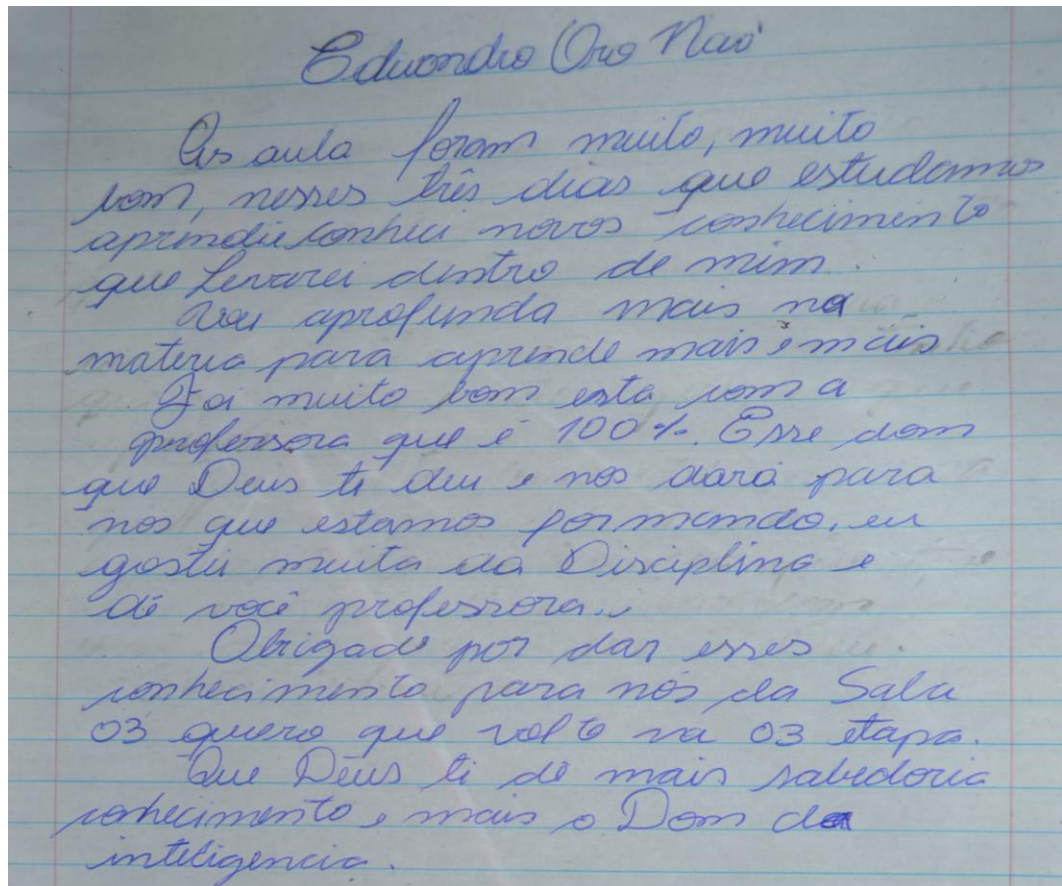 Eduondro Oro Nao'
As aula foram muito, muito
bom, nesses três dias que estudamos
aprendi e conheci novos conhecimento
que levarei dentro de mim.
Vou aprofunda mais na
materia para aprende mais e mais
Foi muito bom esta com a
professora que é 100%. Esse dom
que Deus ti deu e nos dará para
nos que estamos formando, eu
gostei muita da Disciplina e
de você professora..
Obrigado por dar esses
conhecimento para nós da Sala
03 quero que volte na 03 etapa.
Que Deus ti dê mais sabedoria
conhecimento e mais o Dom da
inteligencia.